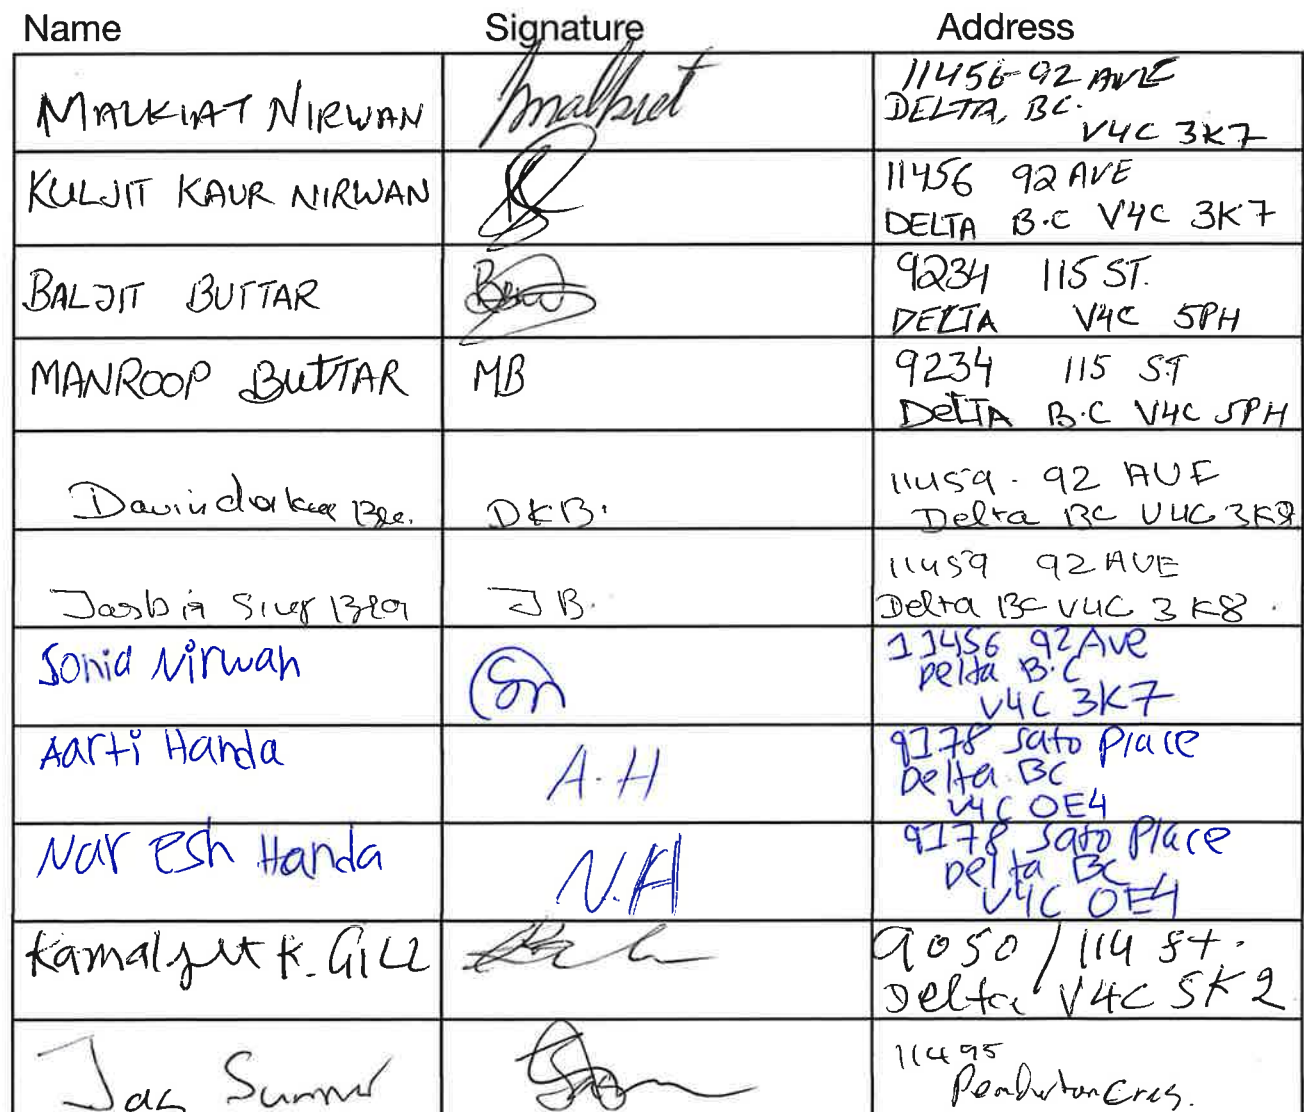 Name Signature Address
MALKIAT NIRWAN malkiet 11456-92 AVE
DELTA, BC.
V4C 3K7
KULJIT KAUR NIRWAN 11456 92 AVE
DELTA B.C V4C 3K7
BALJIT BUTTAR 9234 115 ST.
DELTA V4C 5PH
MANROOP BUTTAR MB 9234 115 ST
DELTA B.C V4C 5PH
DKB. 11459. 92 AVE
Delta BC V4C 3K8
J B. 11459 92 AVE
Delta BC V4C 3K8.
Sonia Nirwan Sn 11456 92 Ave
Delta B.C
V4C 3K7
Aarti Handa A.H 9178 Sato Place
Delta BC
V4C 0E4
Naresh Handa N.H 9178 Sato Place
Delta BC
V4C 0E4
Kamaljeet K. Gill 9050 / 114 St.
Delta V4C 5K2
Jas 11495